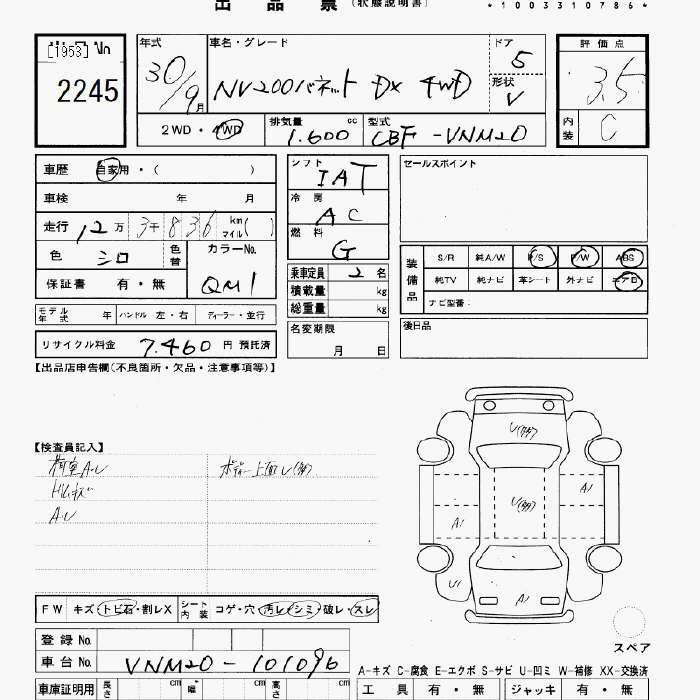 出品票 (状態説明書)
*1003310786*
[1953] No
2245
年式 車名・グレード ドア 評価点
30/9月 NV200バネット DX 4WD 5 3.5
形状 V
2WD・4WD 排気量 cc 型式 内装 C
1.600 CBF-VNM20
車歴 自家用・( )
車検 年 月
走行 12万 3千 836 km マイル( )
色 シロ 色替 カラーNo. QM1
保証書 有・無
モデル年式 年 ハンドル 左・右 ディーラー・並行
リサイクル料金 7.460 円 預託済
シフト IAT
冷房 AC
燃料 G
乗車定員 2 名
積載量 kg
総重量 kg
名変期限
月 日
セールスポイント
装備品 S/R 純A/W P/S P/W ABS
純TV 純ナビ 革シート 外ナビ エアB
ナビ型番:
後日品
【出品店申告欄(不良箇所・欠品・注意事項等)】
【検査員記入】
荷室A.U
A.U
U(多)
U(多)
A1
A1
U1
A1
FW キズ・トビ石・割レX シート内装 コゲ・穴・汚レ・シミ・破レ・スレ
登録No.
車台No. VNM20-101096
スペア
A-キズ C-腐食 E-エクボ S-サビ U-凹ミ W-補修 XX-交換済
車庫証明用 長さ cm 幅 cm 高さ cm
工具 有・無 ジャッキ 有・無